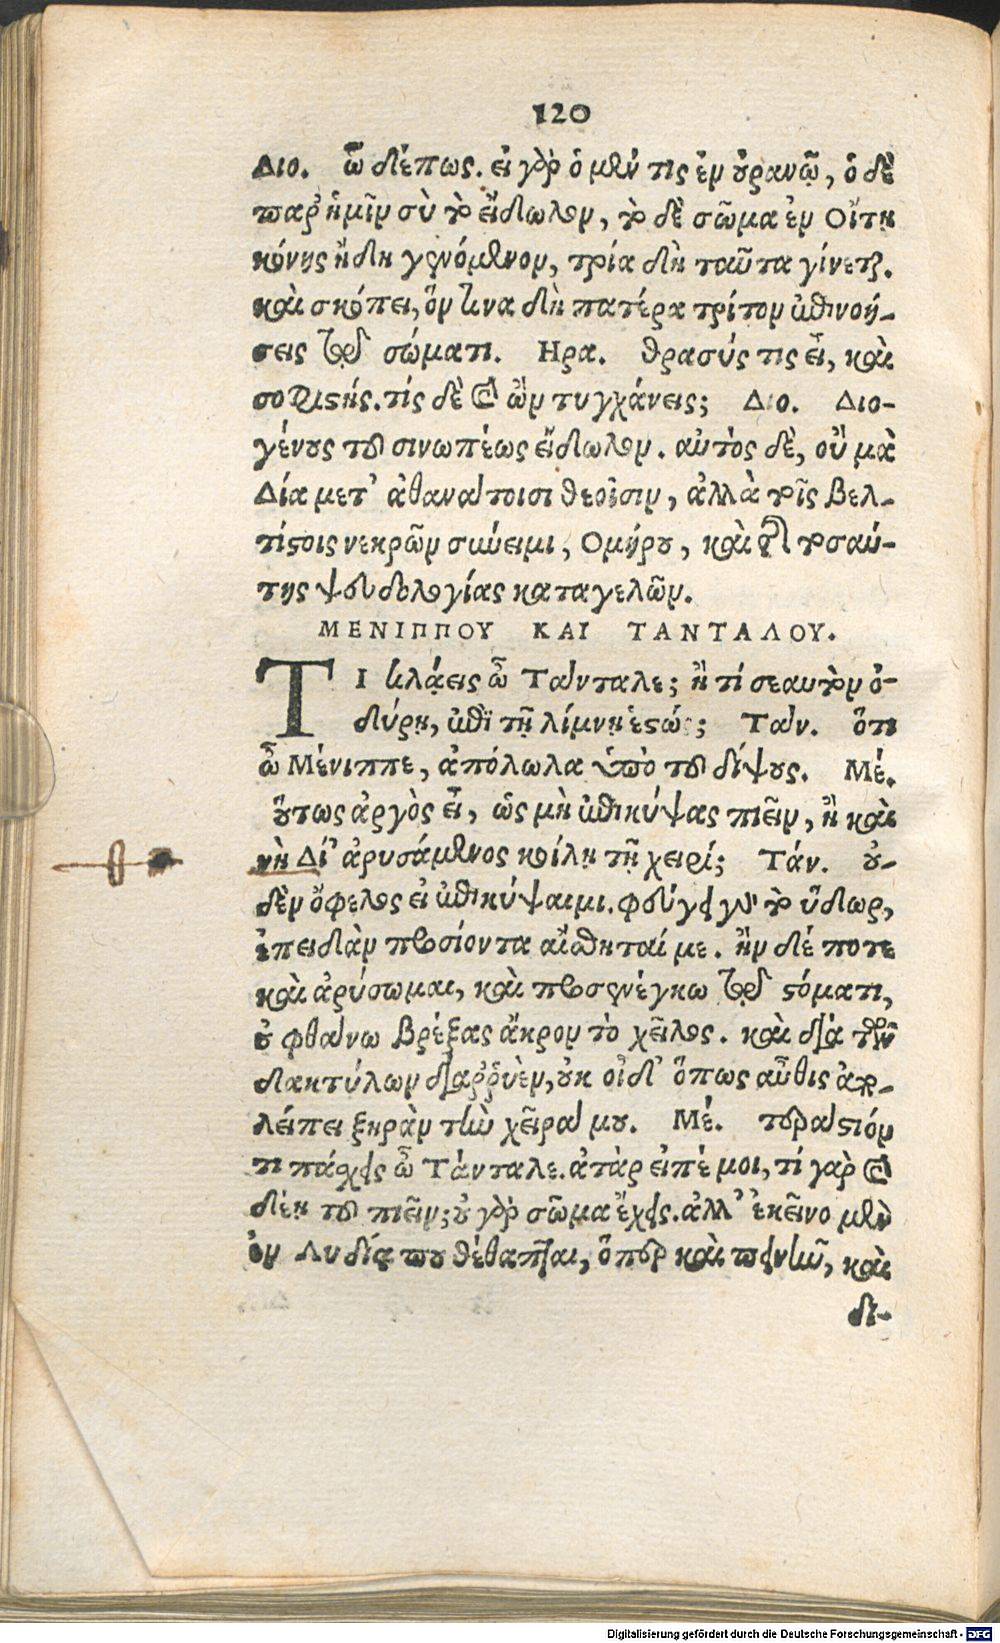 120
Διο. ὦ δέπως. εἰ γὰρ ὁ μέν τις ἐν οὐρανῷ, ὁ δὲ
παρ' ἡμῖν σὺ τὸ εἴδωλον, τὸ δὲ σῶμα ἐν Οἴτῃ
κόνης ἤδη γενόμενον, τρία δὴ ταῦτα γίνεται.
καὶ σκόπει, ὃν τινα δὴ πατέρα τρίτον ἐπινοή-
σεις τῷ σώματι. Ηρα. θρασύς τις εἶ, καὶ
σοφιστής. τίς δὲ καὶ ὢν τυγχάνεις; Διο. Διο-
γένους τοῦ σινωπέως εἴδωλον. αὐτὸς δὲ, οὒ μὰ
Δία μετ' ἀθανάτοισι θεοῖσιν, ἀλλὰ τοῖς βελ-
τίστοις νεκρῶν σύνειμι, Ομήρου, καὶ τῆς τοσαύ-
της ψευδολογίας καταγελῶν.
ΜΕΝΙΠΠΟΥ ΚΑΙ ΤΑΝΤΑΛΟΥ.
ΤΙ κλάεις ὦ Τάνταλε; ἢ τί σεαυτὸν ὀ-
δύρῃ, ἐπὶ τῇ λίμνῃ ἑστώς; Τάν. ὅτι
ὦ Μένιππε, ἀπόλωλα ὑπὸ τοῦ δίψους. Μέ.
οὕτως ἀργὸς εἶ, ὡς μὴ ἐπικύψας πιεῖν, ἢ καὶ
νὴ Δί' ἀρυσάμενος κοίλῃ τῇ χειρί; Τάν. οὐ-
δὲν ὄφελος εἰ ἐπικύψαιμι. φεύγει γὰρ τὸ ὕδωρ,
ἐπειδὰν προσιόντα αἴσθηταί με. ἢν δέ ποτε
καὶ ἀρύσωμαι, καὶ προσενέγκω τῷ στόματι,
οὐ φθάνω βρέξας ἄκρον τὸ χεῖλος. καὶ διὰ τῶν
δακτύλων διαῤῥυὲν, οὐκ οἶδ' ὅπως αὖθις ἀπο-
λείπει ξηρὰν τὴν χεῖρά μου. Μέ. τεράστιόν
τι πάσχεις ὦ Τάνταλε. ἀτὰρ εἰπέ μοι, τί γὰρ καὶ
δέῃ τοῦ πιεῖν; οὐ γὰρ σῶμα ἔχεις. ἀλλ' ἐκεῖνο μὲν
ἐν Λυδίᾳ που τέθαπται, ὅπερ καὶ πεινῆν, καὶ
δι-
Digitalisierung gefördert durch die Deutsche Forschungsgemeinschaft - DFG